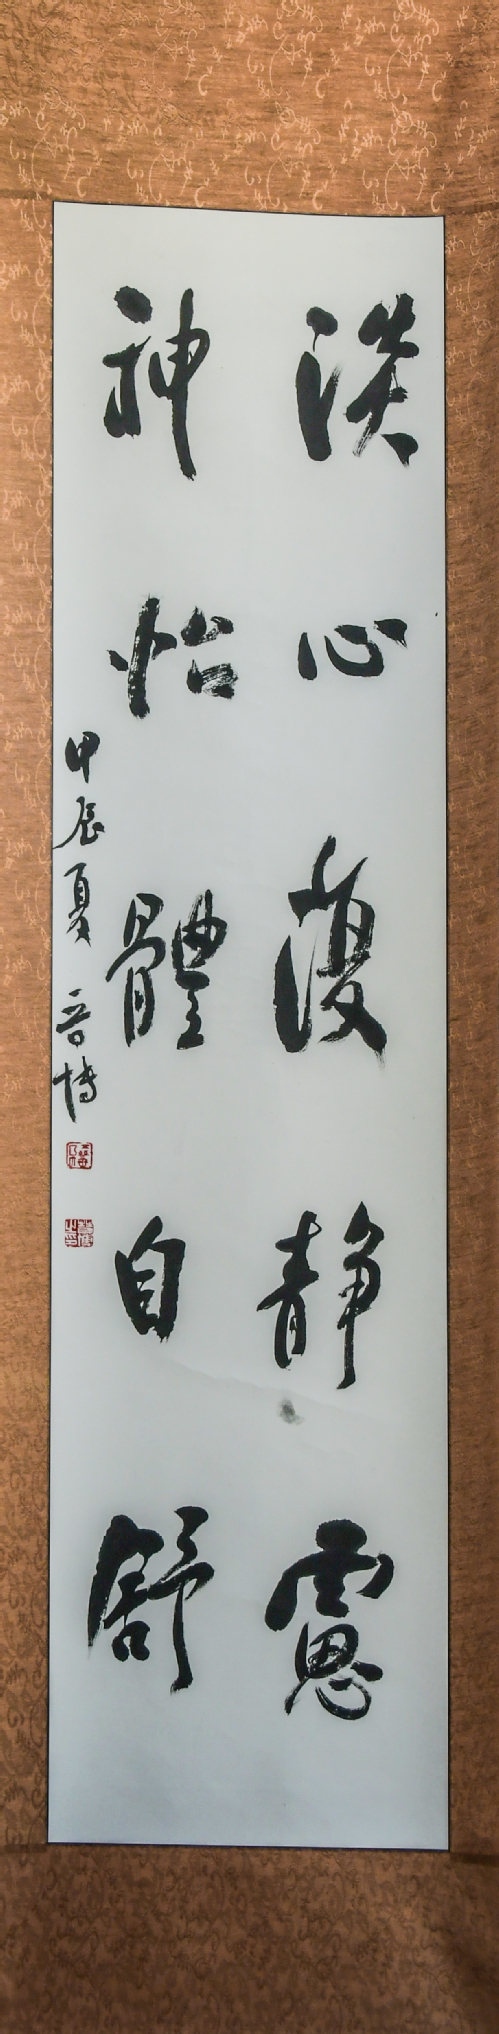 淡心復靜慮
神怡體自舒
甲辰夏 晉博